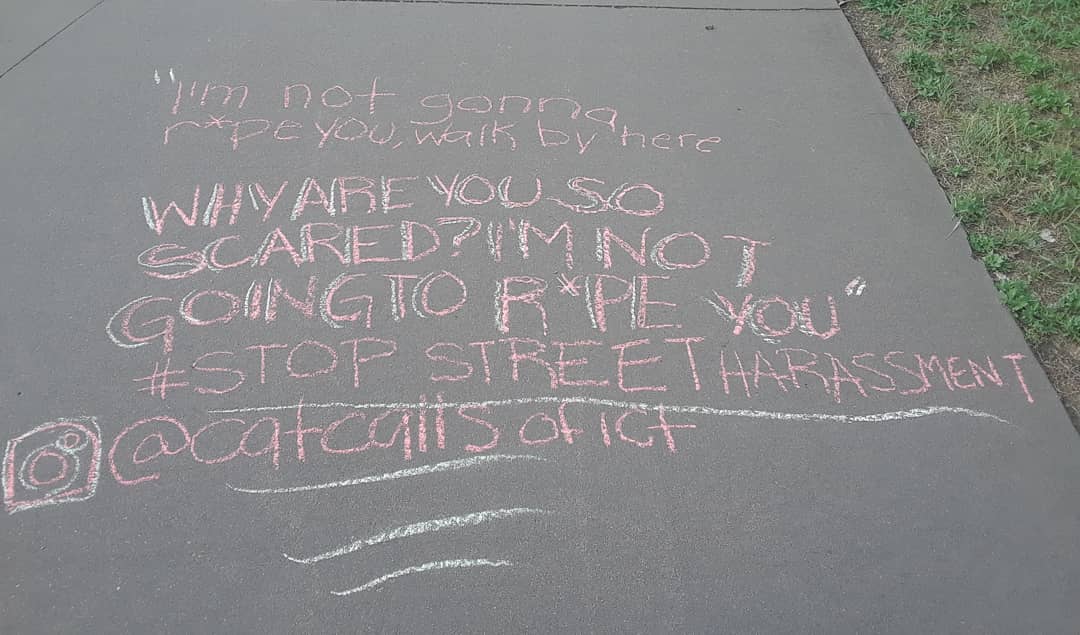 "I'm not gonna
r*pe you, walk by here
WHY ARE YOU SO
SCARED? I'M NOT
GOING TO R*PE YOU"
#STOP STREET HARASSMENT
@catcalls of ict